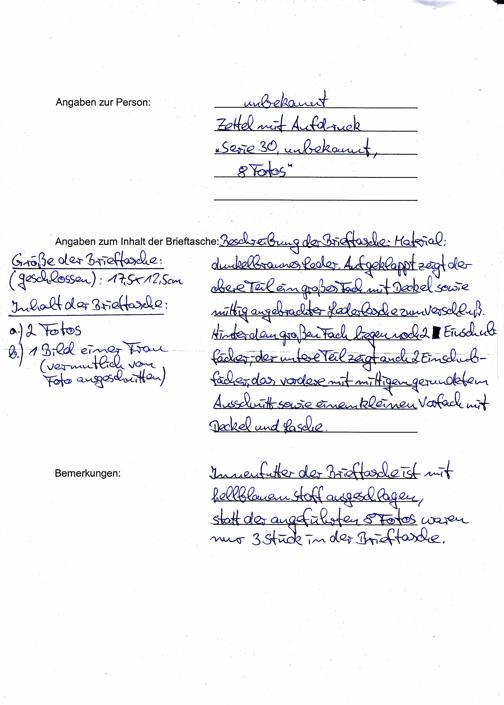 Angaben zur Person:
unbekannt
Zettel mit Aufdruck
"Serie 30, unbekannt,
8 Fotos"
Angaben zum Inhalt der Brieftasche: Beschreibung der Brieftasche: Material:
dunkelbraunes Leder. Aufgeklappt zeigt der
obere Teil ein großes Fach mit Deckel sowie
mittig angebrachter Lederlasche zum Verschluß.
Hinter dem großen Fach liegen noch 2 Einschub-
fächer, der untere Teil zeigt auch 2 Einschub-
fächer, das vordere mit mittigen gerundetem
Ausschnitt sowie einem kleinen Vorfach mit
Deckel und Lasche.
Größe der Brieftasche:
(geschlossen): 17,5 x 12,5cm
Inhalt der Brieftasche:
a) 2 Fotos
b) 1 Bild einer Frau
(vermutlich von
Foto ausgeschnitten)
Bemerkungen:
Innenfutter der Brieftasche ist mit
hellblauen Stoff ausgeschlagen,
statt der angeführten 8 Fotos waren
nur 3 Stück in der Brieftasche.